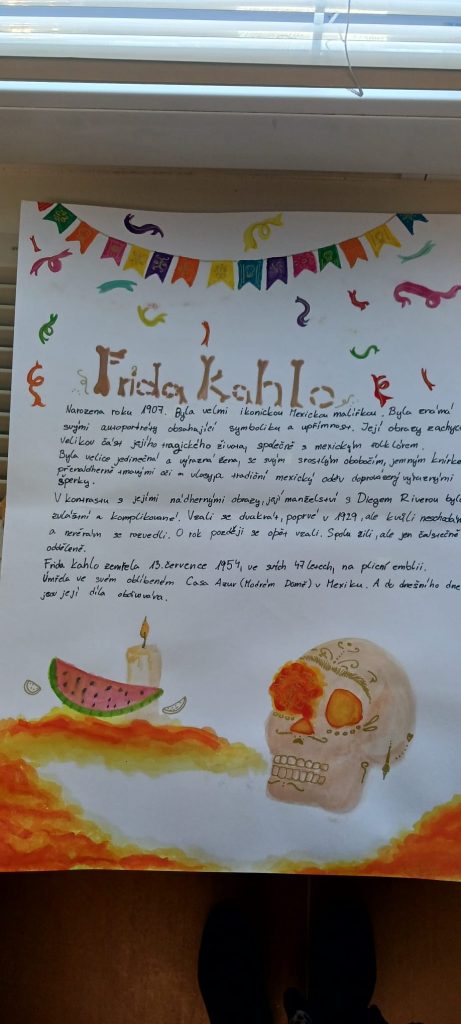 Frida Kahlo
Narozena roku 1907. Byla velmi ikonickou Mexickou malířkou. Byla známá
svými autoportréty obsahující symboliku a upřímnost. Její obrazy zachyc
velikou část jejího tragického života, společně s mexickým folklórem.
Byla velice jedinečná a výrazná žena, se svým srostlým obobočím, jemným knírke
přenádherně tmavými oči a vlasy a tradiční mexický oděv doprovázený výraznými
šperky.
V kontrastu s jejími nádhernými obrazy, její manželství s Diegem Riverou bylo
zvláštní a komplikované. Vzali se dvakrát, poprvé v 1929, ale kvůli neschodám
a nevěrám se rozvedli. O rok později se opět vzali. Spolu žili, ale jen částečně
odděleně.
Frida Kahlo zemřela 13. července 1954, ve svích 47 letech, na plicní emblii.
Umřela ve svém oblíbeném Casa Azur (Modrém Domě) v Mexiku. A do dnešního dne
jsou její díla obdivována.